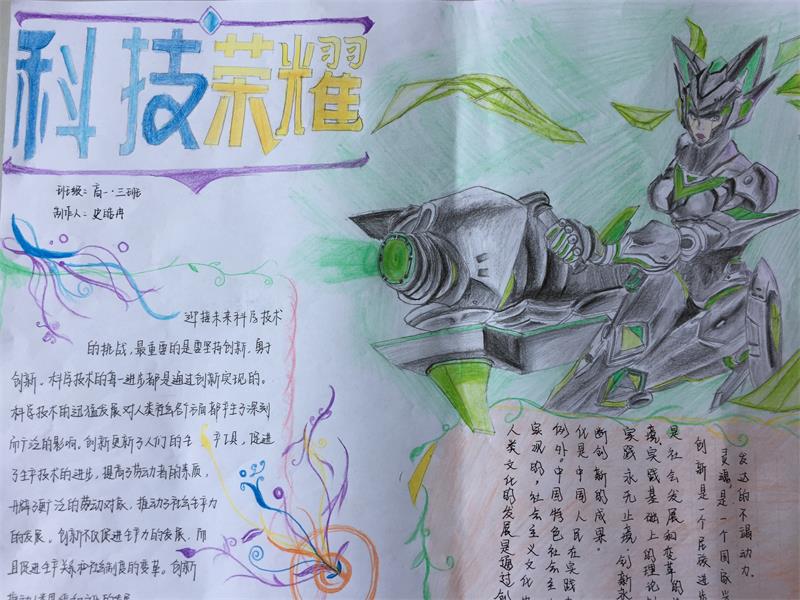 科技荣耀
班级：高一·三班
制作人：史
迎接未来科学技术
的挑战，最重要的是要坚持创新，勇于
创新。科学技术的每一进步都是通过创新实现的。
科学技术的迅猛发展对人类社会各方面都产生了深刻
而广泛的影响。创新更新了人们的生产工具，促进
了生产技术的进步，提高了劳动者的素质，
开辟了更广泛的劳动对象，推动了社会生产力
的发展。创新不仅促进生产力的发展，而
且促进生产关系和社会制度的变革。创新
发达的不竭动力。
灵魂，是一个国家兴
创新是一个民族进步
是社会发展和变革的
境，实践基础上的理论创
实践永无止境，创新永
断创新的成果。
化是中国人民在实践
例外。中国特色社会主
实现的，社会主义文化
人类文化的发展是通过创